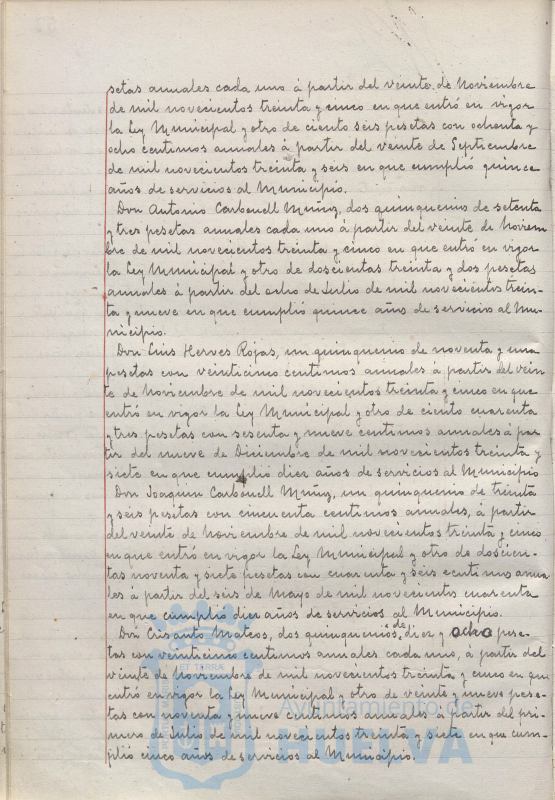 setas anuales cada uno á partir del veinte de Noviembre
de mil novecientos treinta y cinco en que entró en vigor
la Ley Municipal y otro de ciento seis pesetas con ochenta y
ocho centimos anuales á partir del veinte de Septiembre
de mil novecientos treinta y seis en que cumplió quince
años de servicios al Municipio.
Don Antonio Carbonell Muñiz, dos quinquenios de setenta
y tres pesetas anuales cada uno á partir del veinte de Noviem
bre de mil novecientos treinta y cinco en que entró en vigor
la Ley Municipal y otro de doscientas treinta y dos pesetas
anuales á partir del ocho de Julio de mil novecientos trein-
ta y nueve en que cumplió quince años de servicio al Mu-
nicipio.
Don Luis Herves Rojas, un quinquenio de noventa y una
pesetas con veinticinco centimos anuales á partir del vein
te de Noviembre de mil novecientos treinta y cinco en que
entró en vigor la Ley Municipal y otro de ciento cuarenta
y tres pesetas con sesenta y nueve centimos anuales á par
tir del nueve de Diciembre de mil novecientos treinta y
siete en que cumplió diez años de servicios al Municipio
Don Joaquin Carbonell Muñiz, un quinquenio de treinta
y seis pesetas con cincuenta centimos anuales, á partir
del veinte de Noviembre de mil novecientos treinta y cinco
en que entró en vigor la Ley Municipal y otro de doscien-
tas noventa y siete pesetas con cuarenta y seis centimos anua
les á partir del seis de Mayo de mil novecientos cuarenta
en que cumplió diez años de servicios al Municipio.
Don Crisanto Mateos, dos quinquenios de diez y ocho pese
tas con veinticinco centimos anuales cada uno, á partir del
veinte de Noviembre de mil novecientos treinta y cinco en que
entró en vigor la Ley Municipal y otro de veinte y nueve pese-
tas con noventa y nueve centimos anuales á partir del pri-
mero de Julio de mil novecientos treinta y siete en que cum-
plió cinco años de servicios al Municipio.
Ayuntamiento de
HUELVA